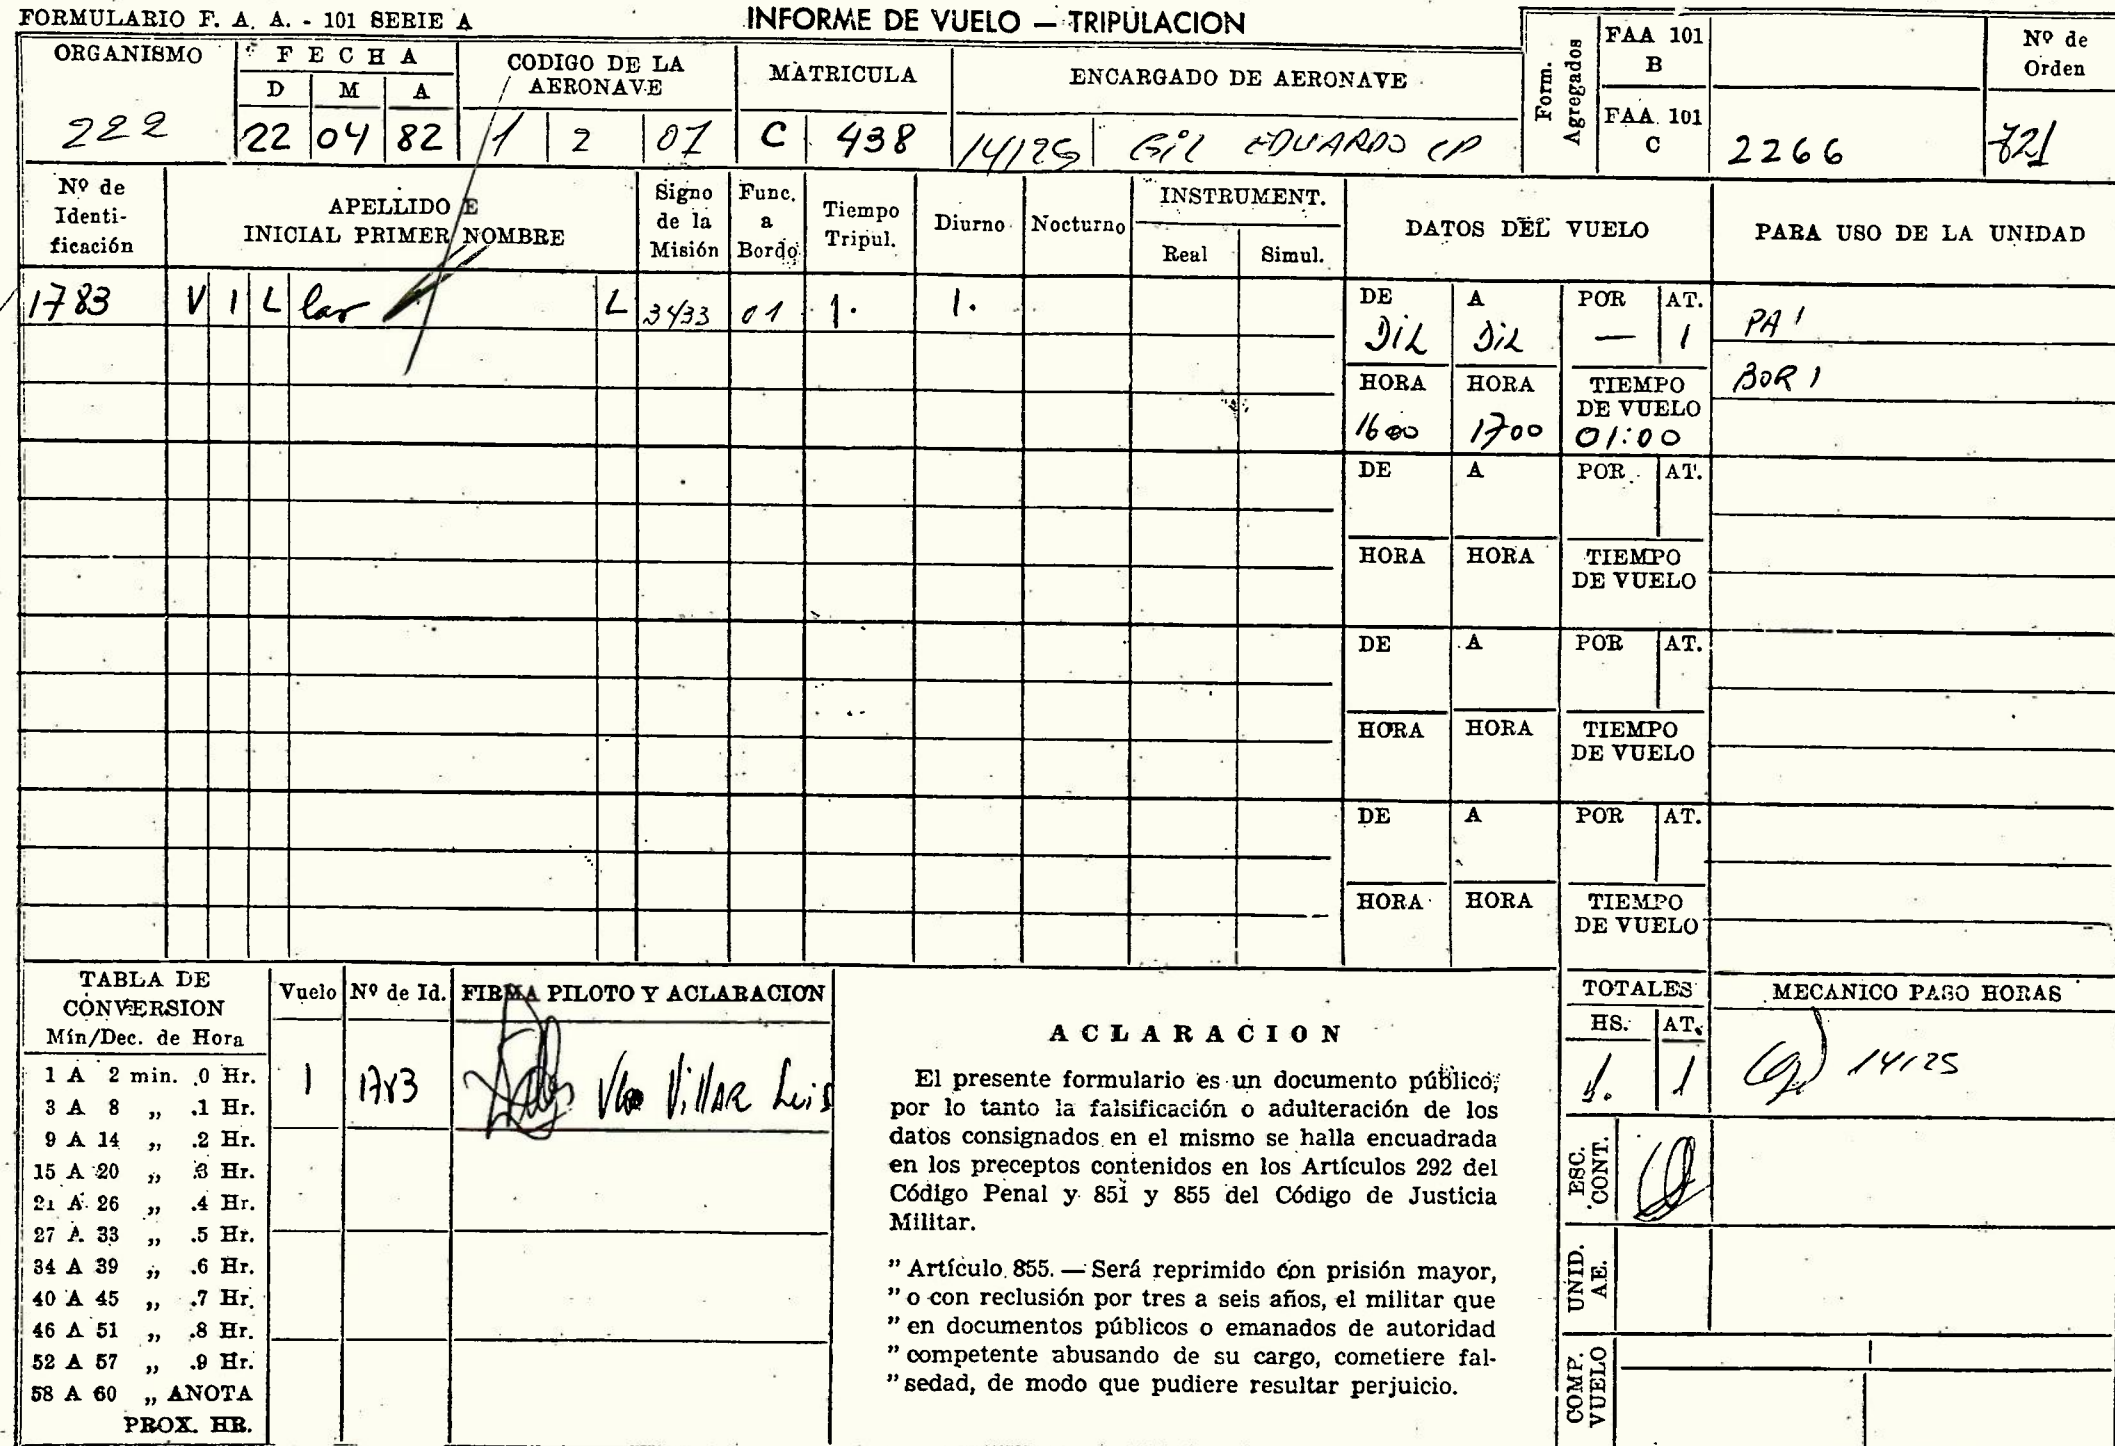 FORMULARIO F. A. A. - 101 SERIE A
INFORME DE VUELO — TRIPULACION
ORGANISMO
222
F E C H A
D M A
22 04 82
CODIGO DE LA
AERONAVE
1 2 07
MATRICULA
C 438
ENCARGADO DE AERONAVE
14125 GIL EDUARDO CP
Form.
Agregados
FAA 101
B
FAA 101
C
2266
Nº de
Orden
821
Nº de
Identi-
ficación
APELLIDO E
INICIAL PRIMER NOMBRE
Signo
de la
Misión
Func.
a
Bordo
Tiempo
Tripul.
Diurno
Nocturno
INSTRUMENT.
Real Simul.
DATOS DEL VUELO
PARA USO DE LA UNIDAD
1783 V I L lar L 3433 01 1. 1.
DE A POR AT.
DiL DiL — 1
HORA HORA TIEMPO
DE VUELO
1600 1700 01:00
PA 1
BOR 1
DE A POR AT.
HORA HORA TIEMPO
DE VUELO
DE A POR AT.
HORA HORA TIEMPO
DE VUELO
DE A POR AT.
HORA HORA TIEMPO
DE VUELO
TABLA DE
CONVERSION
Mín/Dec. de Hora
1 A 2 min. .0 Hr.
3 A 8 ,, .1 Hr.
9 A 14 ,, .2 Hr.
15 A 20 ,, .3 Hr.
21 A 26 ,, .4 Hr.
27 A 33 ,, .5 Hr.
34 A 39 ,, .6 Hr.
40 A 45 ,, .7 Hr.
46 A 51 ,, .8 Hr.
52 A 57 ,, .9 Hr.
58 A 60 ,, ANOTA
PROX. HR.
Vuelo Nº de Id. FIRMA PILOTO Y ACLARACION
1 1783 Villar Luis
ACLARACION
El presente formulario es un documento público,
por lo tanto la falsificación o adulteración de los
datos consignados en el mismo se halla encuadrada
en los preceptos contenidos en los Artículos 292 del
Código Penal y 851 y 855 del Código de Justicia
Militar.
" Artículo 855. — Será reprimido con prisión mayor,
" o con reclusión por tres a seis años, el militar que
" en documentos públicos o emanados de autoridad
" competente abusando de su cargo, cometiere fal-
" sedad, de modo que pudiere resultar perjuicio.
TOTALES
HS. AT.
1. 1
MECANICO PASO HORAS
14125
ESC.
CONT.
UNID.
AE.
COMP.
VUELO